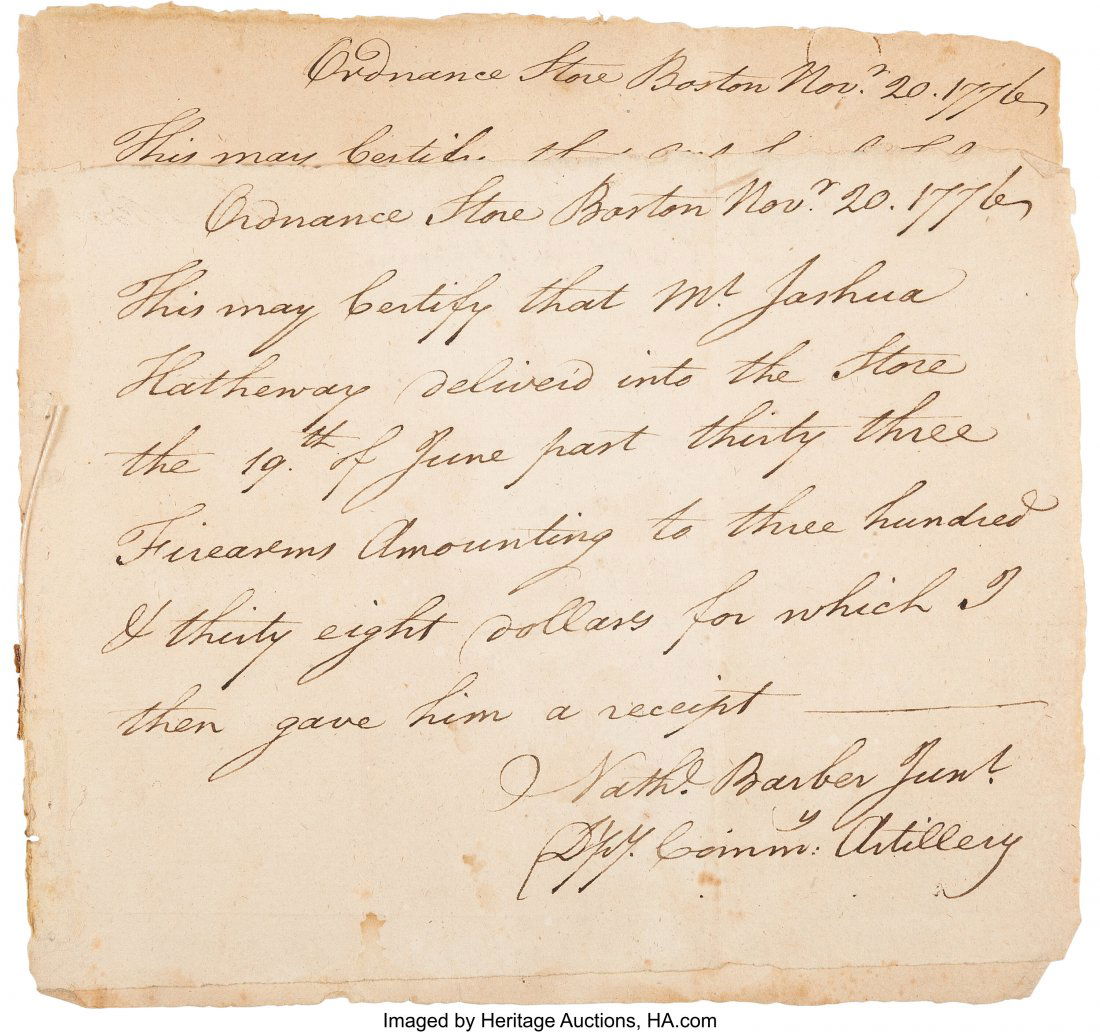 Ordnance Store Boston Nov.r 20. 1776
This may Certify
Ordnance Store Boston Nov.r 20. 1776
This may Certify that Mr. Joshua
Hatheway deliver'd into the Store
the 19.th of June past thirty three
Firearms Amounting to three hundred
& thirty eight dollars for which I
then gave him a receipt
Nath.l Barber Jun.r
Dpy. Commy: Artillery
Imaged by Heritage Auctions, HA.com